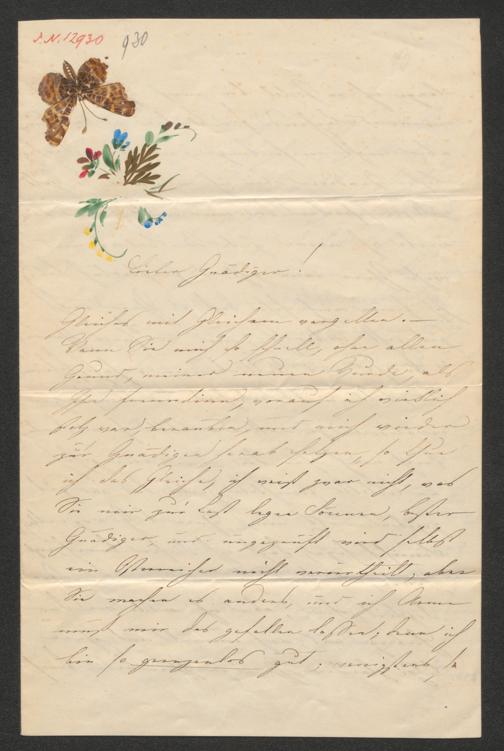 J. N. 12930 930
Lieber Gnädiger!
Gleiches mit Gleichem vergelten. —
Wenn Sie mich so schnell, ohne allen
Grund, meiner neuen Würde als
Ihre Freundinn, worauf ich wirklich
stolz war, berauben, und mich wieder
zur Gnädigen herab setzen, so thue
ich das Gleiche, ich weiß zwar nicht, was
Sie mir zur Last legen können, bester
Gnädiger, und ungeprüft wird selbst
ein Verbrecher nicht verurtheilt, aber
Sie machen es anders, und ich Arme
muß mir das gefallen lassen; denn ich
bin so grenzenlos gut, wenigstens so